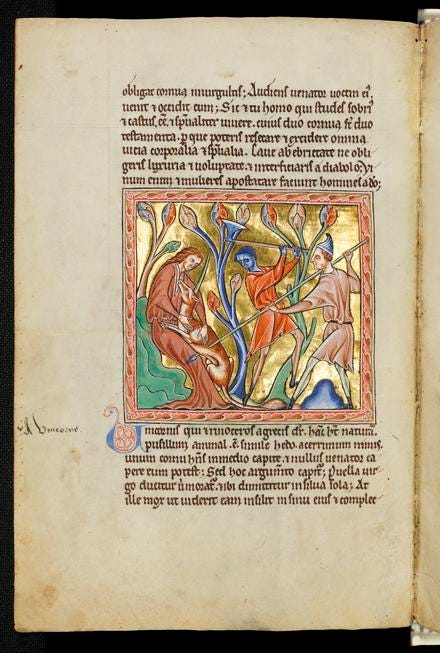 obligat cornua in uirgultis; Audiens uenator uocem ei'
uenit ⁊ occidit eum; Sic ⁊ tu homo qui studes sobri'
⁊ castus cẽ, ⁊ spũaliter uiuere. cuius duo cornua st̃ duo
testamenta. p que poteris resecare ⁊ excidere omnia
uicia corporalia ⁊ spũalia. Caue ab ebrietate ne obli
geris luxuria ⁊ uoluptate. ⁊ interficiaris a diabolo. Vi
num enim ⁊ mulieres apostatare faciunt homines a dõ;
Vnicorne.
Vnicornis qui ⁊ rinoceros a grecis dr̃. hanc ht̃ naturã.
pusillum animal ẽ. simile hedo. acerrimum nimis.
unum cornu hñs in medio capite. ⁊ nullus uenator ea
pere eum potest; Sed hoc argumto capit'; Puella uir
go ducitur ubi morat'. ⁊ ibi dimittitur in silua sola; At
ille mox ut uiderit eam insilit in sinu eius ⁊ complec